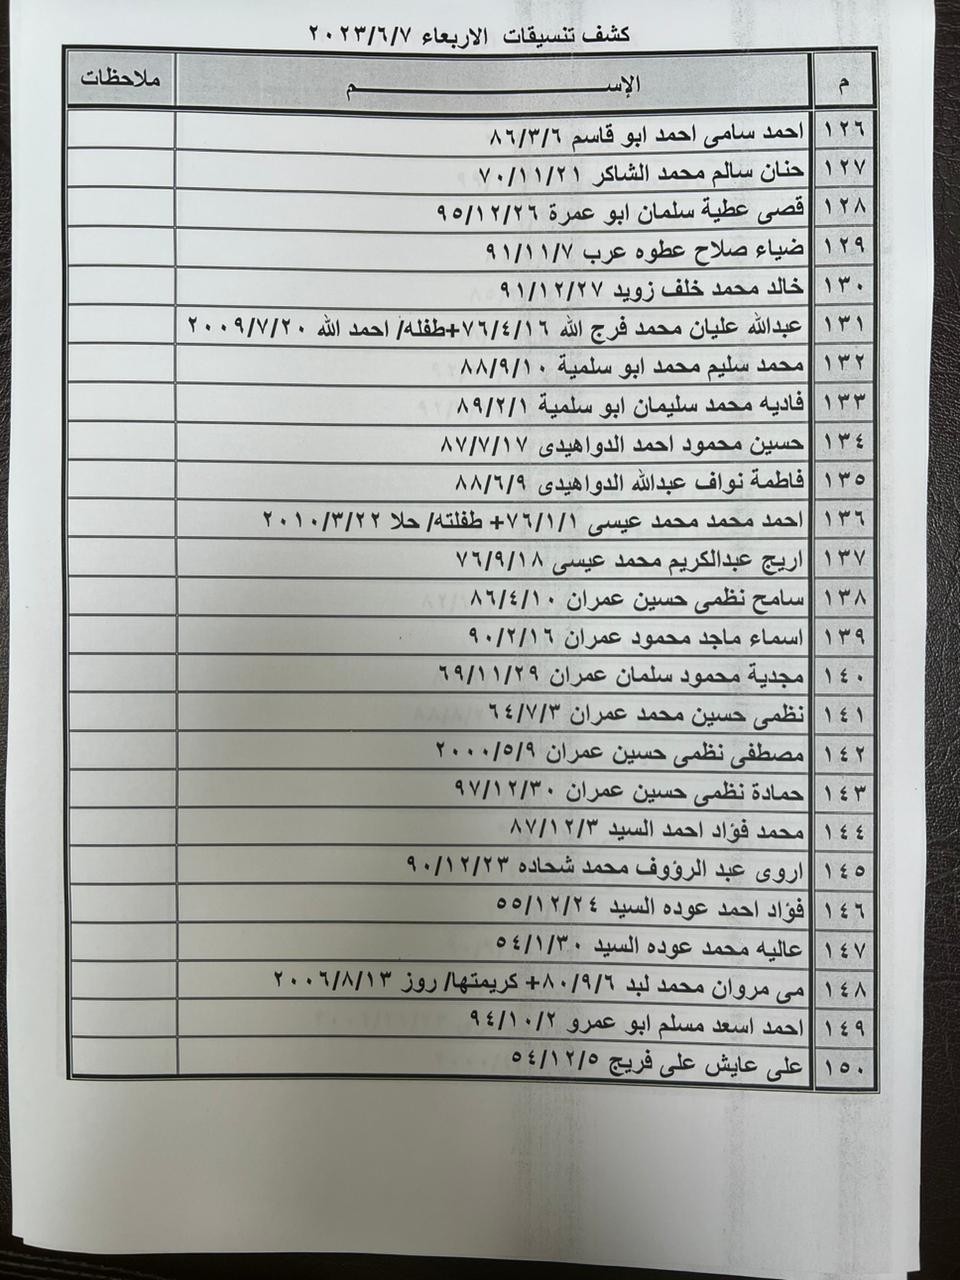 كشف تنسيقات الاربعاء ٢٠٢٣/٦/٧
م الإســـــــــــــــــــــــــــــــــم ملاحظات
١٢٦ احمد سامى احمد ابو قاسم ٨٦/٣/٦
١٢٧ حنان سالم محمد الشاكر ٧٠/١١/٢١
١٢٨ قصى عطية سلمان ابو عمرة ٩٥/١٢/٢٦
١٢٩ ضياء صلاح عطوه عرب ٩١/١١/٧
١٣٠ خالد محمد خلف زويد ٩١/١٢/٢٧
١٣١ عبدالله عليان محمد فرج الله ٧٦/٤/١٦+طفله/ احمد الله ٢٠٠٩/٧/٢٠
١٣٢ محمد سليم محمد ابو سلمية ٨٨/٩/١٠
١٣٣ فاديه محمد سليمان ابو سلمية ٨٩/٢/١
١٣٤ حسين محمود احمد الدواهيدى ٨٧/٧/١٧
١٣٥ فاطمة نواف عبدالله الدواهيدى ٨٨/٦/٩
١٣٦ احمد محمد محمد عيسى ٧٦/١/١+ طفلته/ حلا ٢٠١٠/٣/٢٢
١٣٧ اريج عبدالكريم محمد عيسى ٧٦/٩/١٨
١٣٨ سامح نظمى حسين عمران ٨٦/٤/١٠
١٣٩ اسماء ماجد محمود عمران ٩٠/٢/١٦
١٤٠ مجدية محمود سلمان عمران ٦٩/١١/٢٩
١٤١ نظمى حسين محمد عمران ٦٤/٧/٣
١٤٢ مصطفى نظمى حسين عمران ٢٠٠٠/٥/٩
١٤٣ حمادة نظمى حسين عمران ٩٧/١٢/٣٠
١٤٤ محمد فؤاد احمد السيد ٨٧/١٢/٣
١٤٥ اروى عبد الرؤوف محمد شحاده ٩٠/١٢/٢٣
١٤٦ فؤاد احمد عوده السيد ٥٥/١٢/٢٤
١٤٧ عاليه محمد عوده السيد ٥٤/١/٣٠
١٤٨ مى مروان محمد لبد ٨٠/٩/٦+ كريمتها/ روز ٢٠٠٦/٨/١٣
١٤٩ احمد اسعد مسلم ابو عمرو ٩٤/١٠/٢
١٥٠ على عايش على فريج ٥٤/١٢/٥